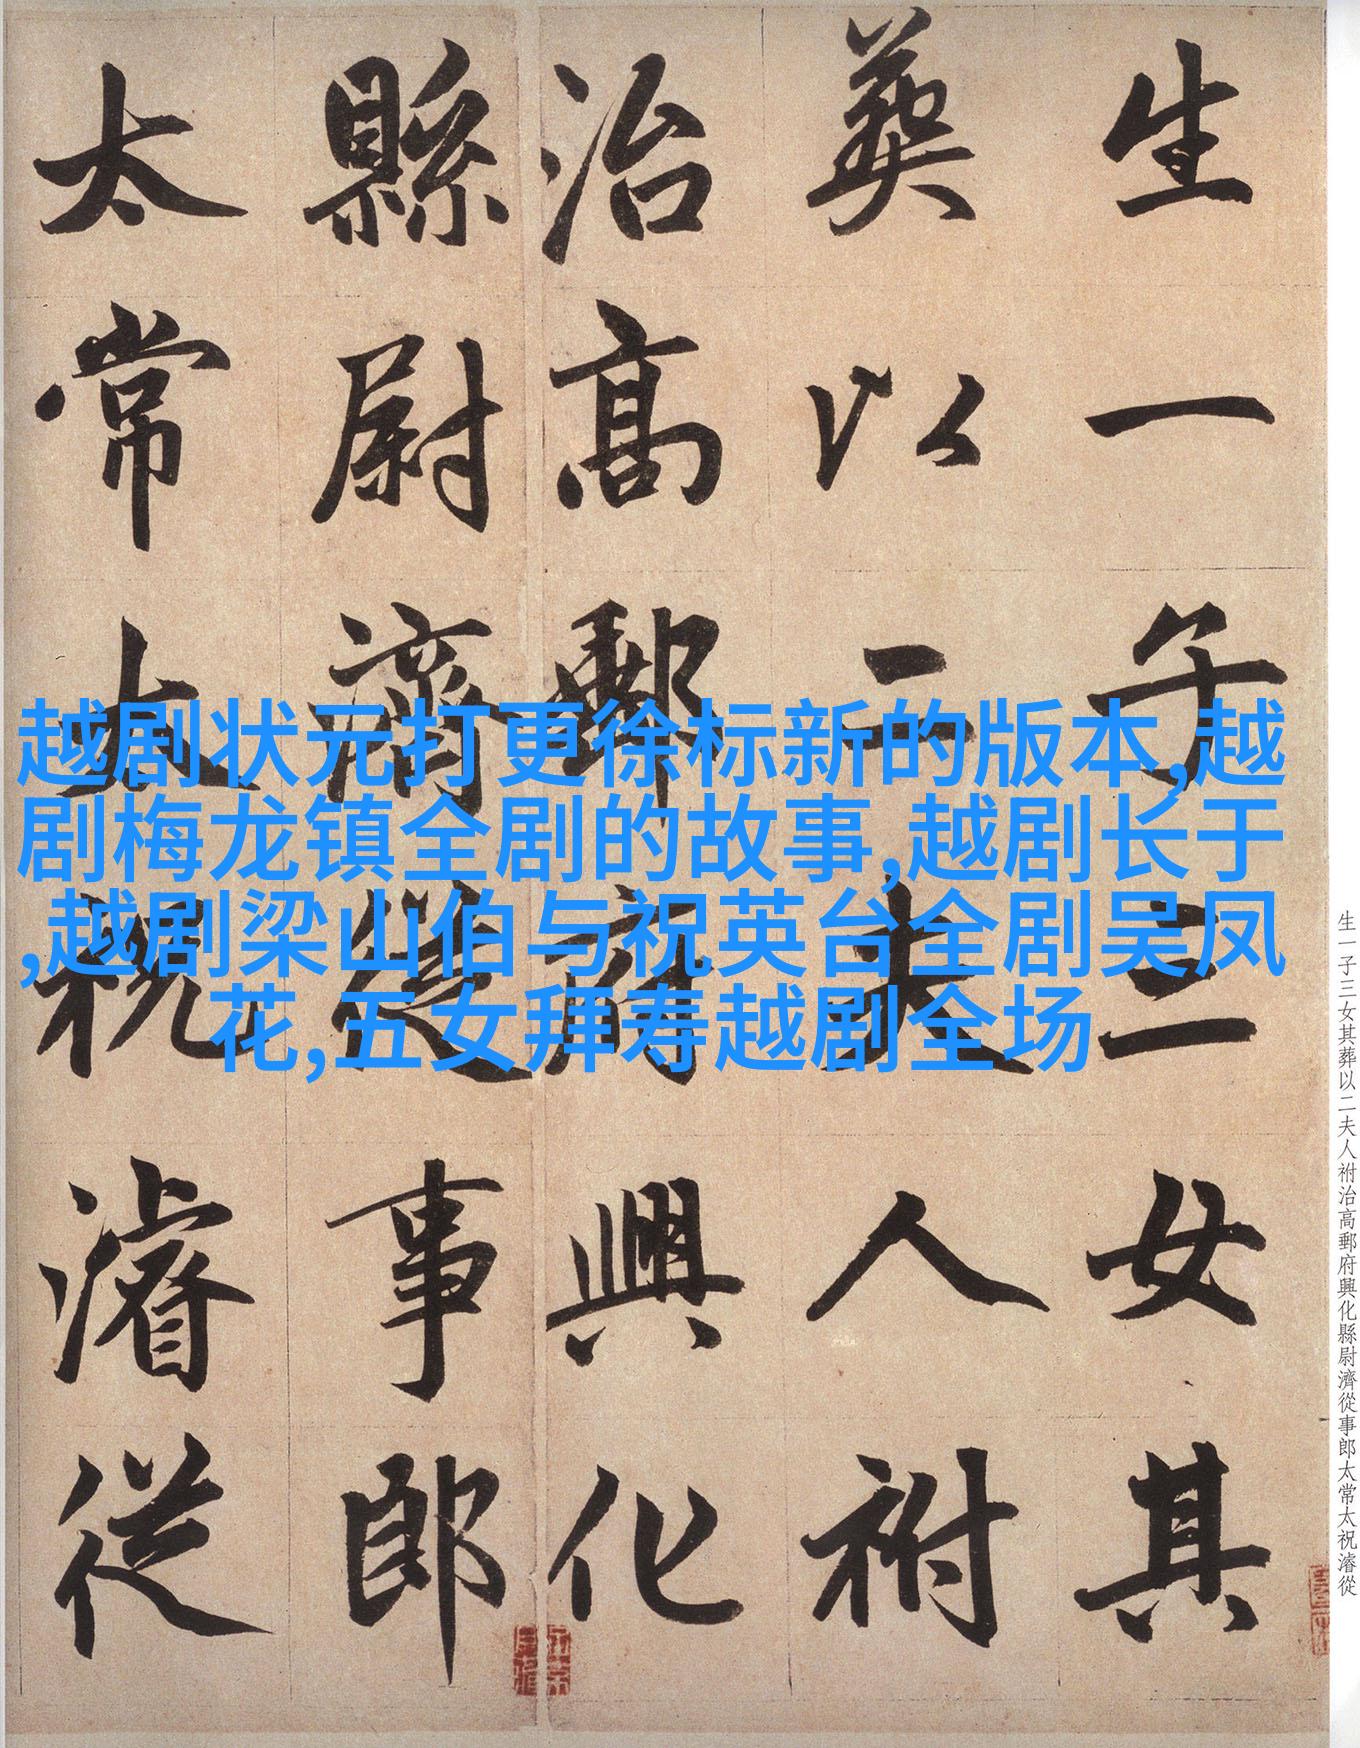 生一子三女其
葬以二夫人祔
治高郵府興化
縣尉濟從事郎
太常太祝濬從
越剧状元打更徐标新的版本,越
剧梅龙镇全剧的故事,越剧长于
,越剧梁山伯与祝英台全剧吴凤
花,五女拜寿越剧全场
生一子三女其葬以二夫人祔治高郵府興化縣尉濟從事郎太常太祝濬從